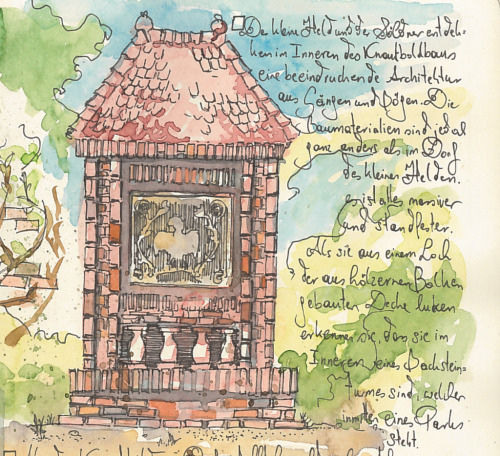 Der kleine Held und der Söldner entdek-
ken im Inneren des Knautboldbaus
eine beeindruckende Architektur
aus Gängen und Bögen. Die
Baumaterialien sind edal
ganz anders als im Dorf
des kleinen Helden.
es ist alles massiver
und standfester.
Als sie aus einem Loch
der aus hölzernen Balken
gebauten Decke luken
erkennen sie, das sie im
Inneren eines Backstein-
turmes sind, welcher
inmitten eines Parks
steht.